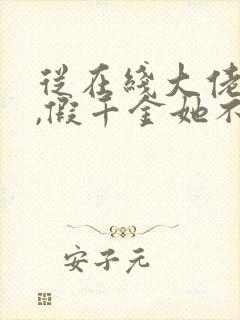 从在线大佬
,假千金她不
安子元